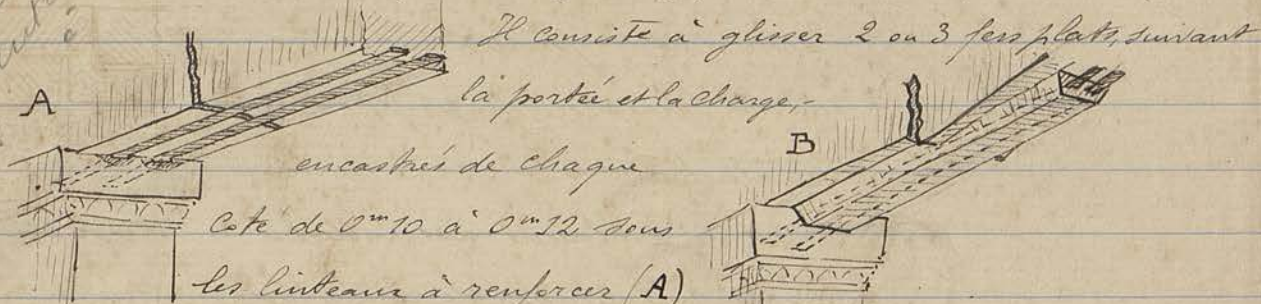 Il consiste à glisser 2 ou 3 fers plats, suivant
la portée et la charge,-
A
B
encastrés de chaque
Coté de 0m10 à 0m12 sous
les linteaux à renforcer (A)